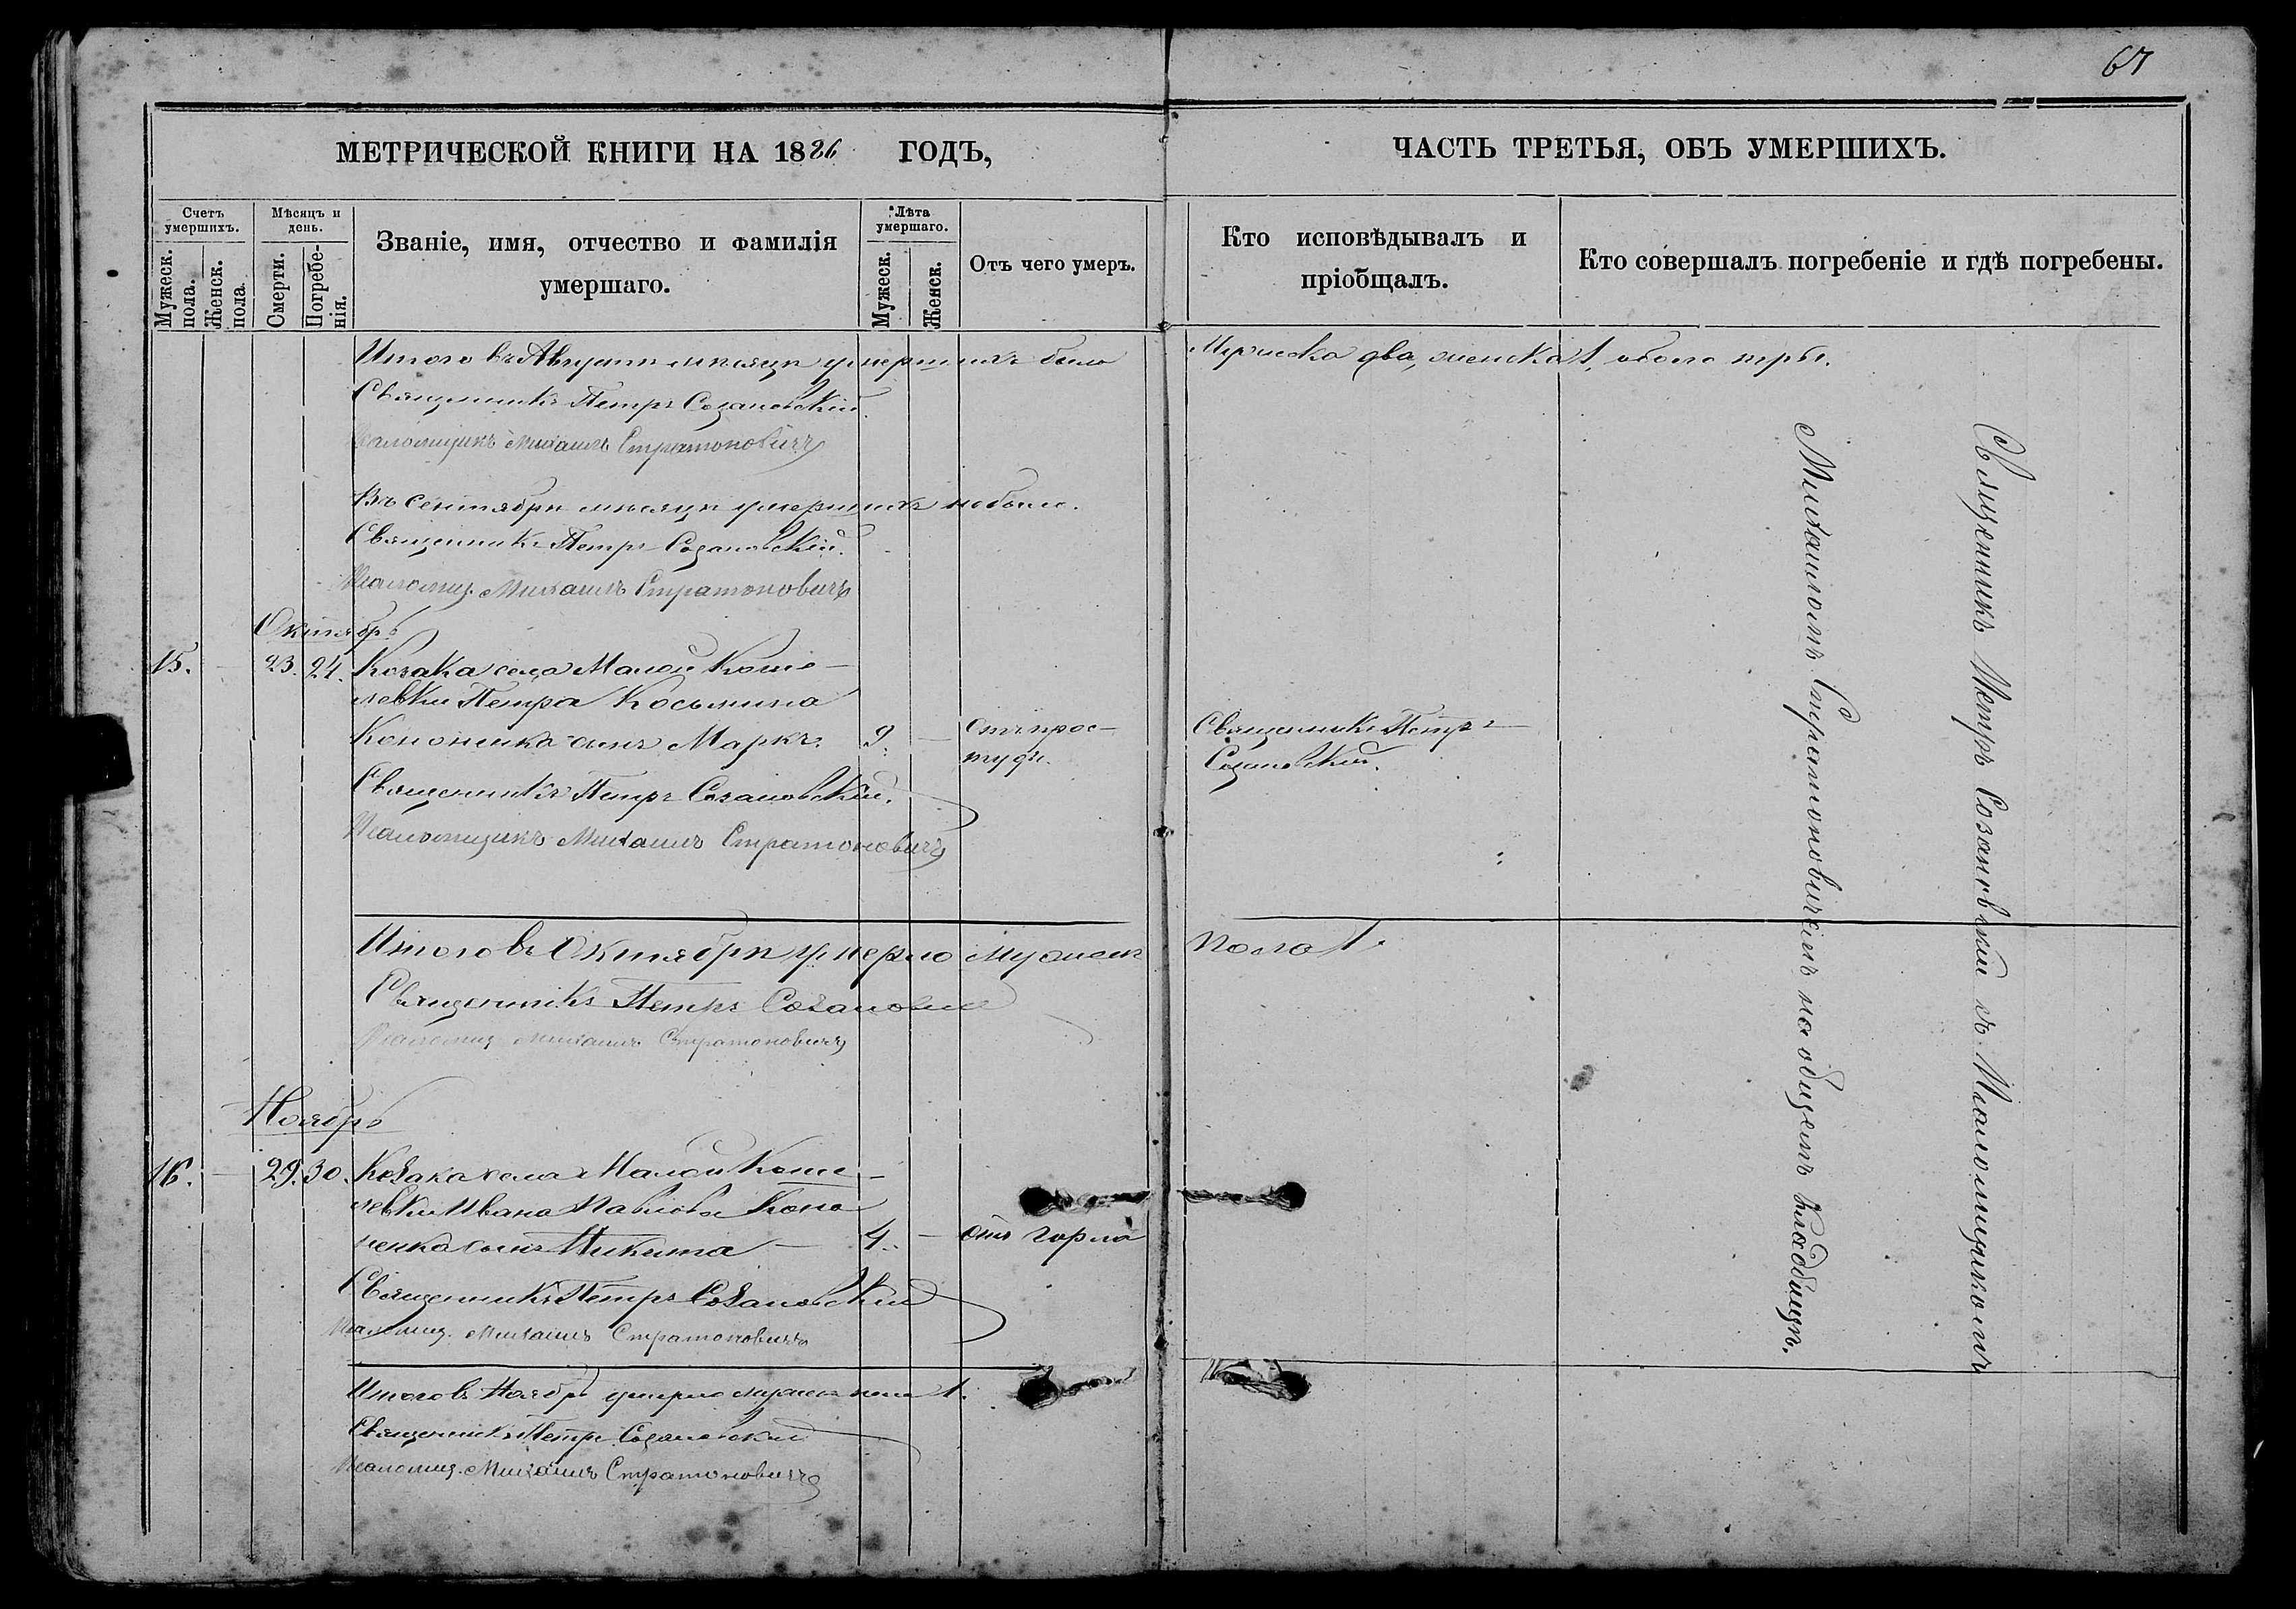 67
МЕТРИЧЕСКОЙ КНИГИ НА 1886 ГОДЪ,
ЧАСТЬ ТРЕТЬЯ, ОБЪ УМЕРШИХЪ.
Счетъ умершихъ.
Мужеск. пола.
Женск. пола.
Мѣсяцъ и день.
Смерти.
Погребенія.
Званіе, имя, отчество и фамилія
умершаго.
Лѣта умершаго.
Мужеск.
Женск.
Отъ чего умеръ.
Кто исповѣдывалъ и
пріобщалъ.
Кто совершалъ погребеніе и гдѣ погребены.
Итого въ Августѣ мѣсяцѣ умершихъ было Мужеска два, женска 1, обоего три.
Священникъ Петръ Созановскій.
Псаломщикъ Михаилъ Стратоновичъ
Въ Сентябрѣ мѣсяцѣ умершихъ небыло.
Священникъ Петръ Созановскій.
Псаломщ. Михаилъ Стратоновичъ
Октябрь
15. – 23. 24. Козака села Малой Коше-
левки Петра Косьмина
Кононенка сынъ Маркъ. 9. – Отъ прос- Священникъ Петръ
туды. Созановскій.
Священникъ Петръ Созановскій.
Псаломщикъ Михаилъ Стратоновичъ
Итого въ Октябрѣ умерло мужеск пола 1.
Священникъ Петръ Созановскій
Псаломщ Михаилъ Стратоновичъ
Ноябрь
16. – 29. 30. Козака села Малой Коше-
левки Ивана Павлова Коно
ненка сынъ Никита – 4. – Отъ горла
Священникъ Петръ Созановскій
Псаломщ. Михаилъ Стратоновичъ
Итого въ Ноябрѣ умерло мужеск пола 1.
Священникъ Петръ Созановскій
Псаломщ. Михаилъ Стратоновичъ
Священникъ Петръ Созановскій съ Псаломщикомъ
Михаиломъ Стратоновичемъ на общемъ кладбищѣ.